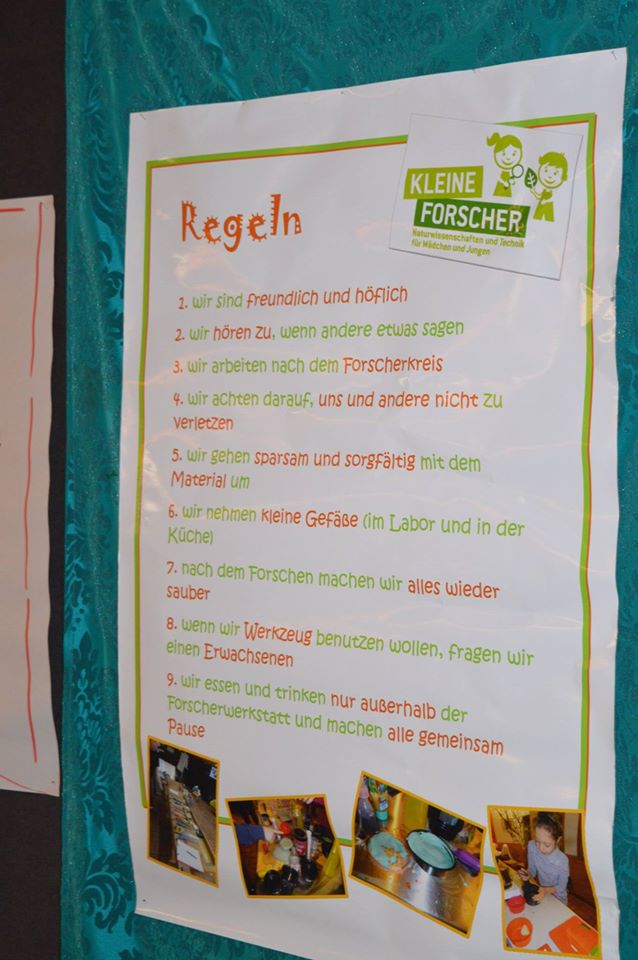 KLEINE
FORSCHER
Naturwissenschaften und Technik
für Mädchen und Jungen
Regeln
1. wir sind freundlich und höflich
2. wir hören zu, wenn andere etwas sagen
3. wir arbeiten nach dem Forscherkreis
4. wir achten darauf, uns und andere nicht zu
verletzen
5. wir gehen sparsam und sorgfältig mit dem
Material um
6. wir nehmen kleine Gefäße (im Labor und in der
Küche)
7. nach dem Forschen machen wir alles wieder
sauber
8. wenn wir Werkzeug benutzen wollen, fragen wir
einen Erwachsenen
9. wir essen und trinken nur außerhalb der
Forscherwerkstatt und machen alle gemeinsam
Pause